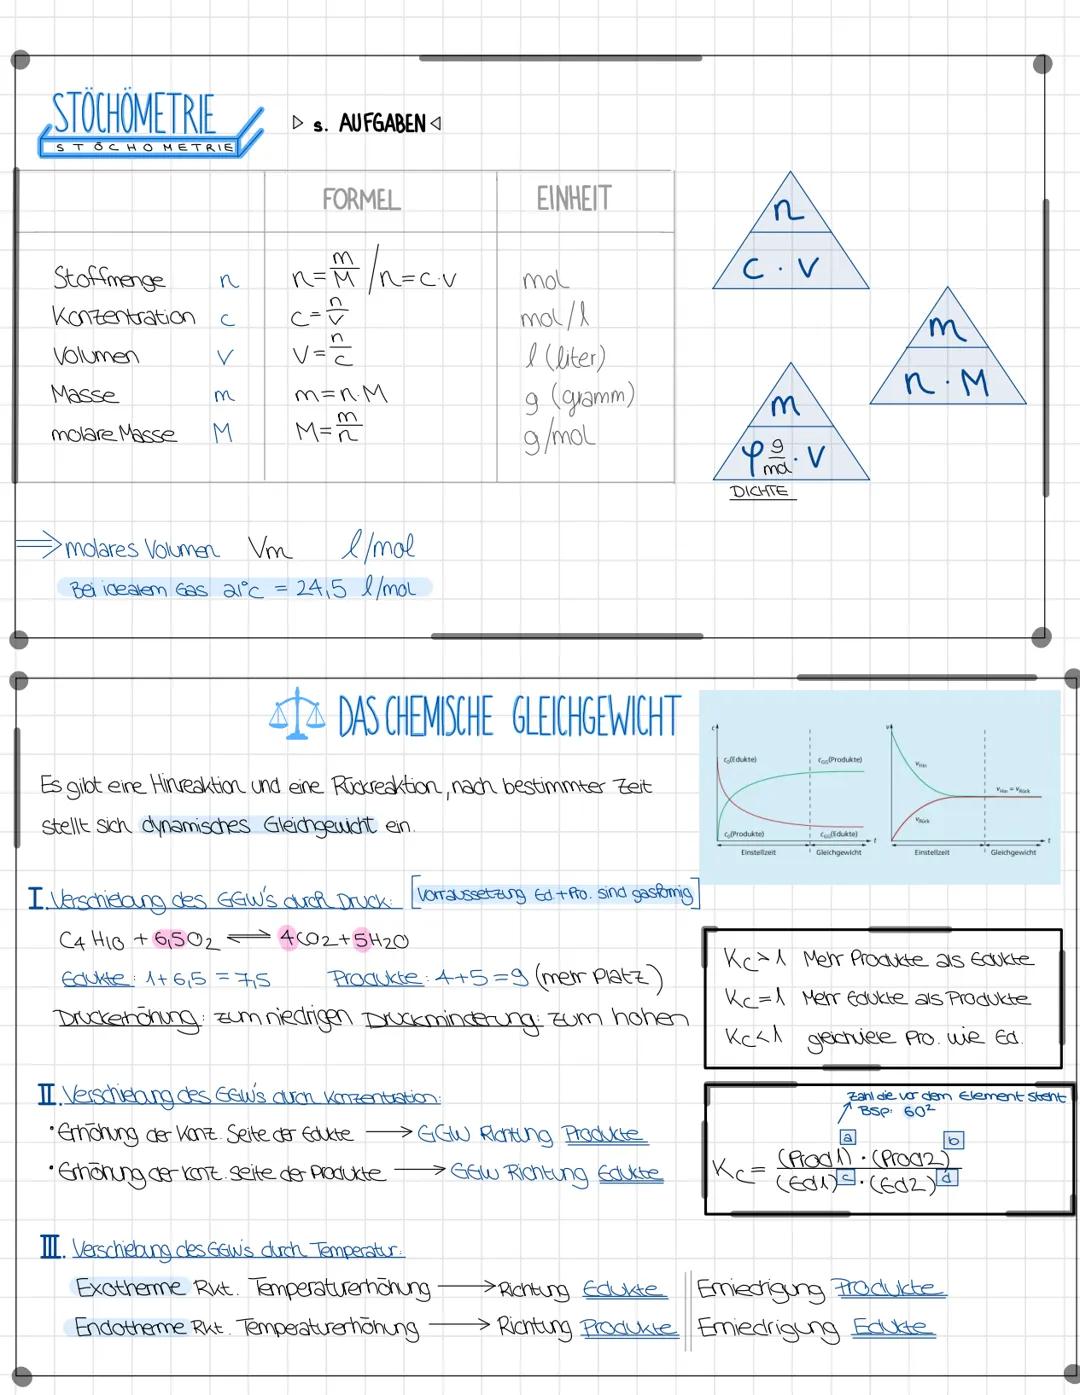 STÖCHÖMETRIE
STÖCHOMETRIE
▷ s. AUFGABEN ◁
FORMEL EINHEIT
Stoffmenge n n=m/M / n=c·v mol
Konzentration c c=n/v mol/l
Volumen V V=n/c l (liter)
Masse m m=n·M g (gramm)
molare Masse M M=m/n g/mol
n
c · V
m
n · M
m
φ g/mol · V
DICHTE
⟹ molares Volumen Vm l/mol
Bei idealem Gas 21°C = 24,5 l/mol
DAS CHEMISCHE GLEICHGEWICHT
Es gibt eine Hinreaktion und eine Rückreaktion, nach bestimmter Zeit
stellt sich dynamisches Gleichgewicht ein.
c
c₀(Edukte)
cGG(Produkte)
c₀(Produkte)
cGG(Edukte)
t
Einstellzeit Gleichgewicht
v
vHin
vHin = vRück
vRück
t
Einstellzeit Gleichgewicht
I. Verschiebung des GGW's durch Druck: [Vorraussetzung Ed + Pro. sind gasförmig]
C4 H10 + 6,5O2 ⇌ 4CO2+5H2O
Edukte: 1+6,5 = 7,5 Produkte: 4+5=9 (mehr Platz)
Druckerhöhung: zum niedrigen Druckminderung: zum hohen
Kc>1 Mehr Produkte als Edukte
Kc=1 Merr Edukte als Produkte
Kc<1 gleichviele Pro. wie Ed.
II. Verschiebung des GGW's durch Konzentration:
•Erhöhung der Konz. Seite der Edukte → GGW Richtung Produkte
•Erhöhung der konz. seite der Produkte → GGW Richtung Edukte
Zahl die vor dem Element steht
BSP: 6O²
Kc = (Prod1)ᵃ · (Prod2)ᵇ / (Ed1)ᶜ · (Ed2)ᵈ
III. Verschiebung des GGW's durch Temperatur:
Exotherme Rkt. Temperaturerhöhung → Richtung Edukte || Erniedrigung Produkte
Endotherme Rkt. Temperaturerhöhung → Richtung Produkte || Erniedrigung Edukte